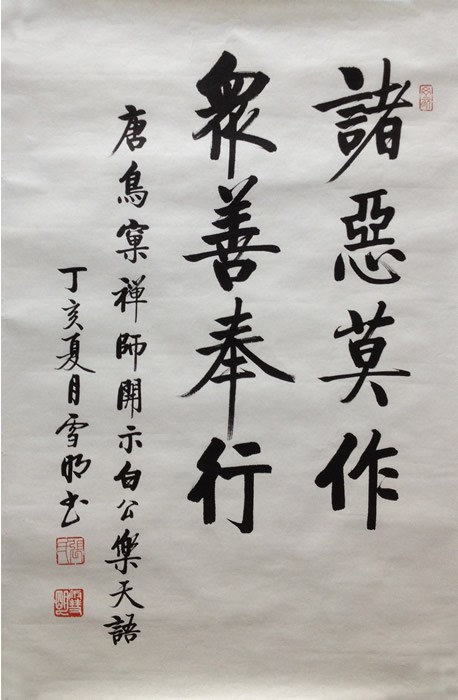 諸惡莫作
眾善奉行
唐鳥窠禅師開示白公樂天語
丁亥夏月雪明书